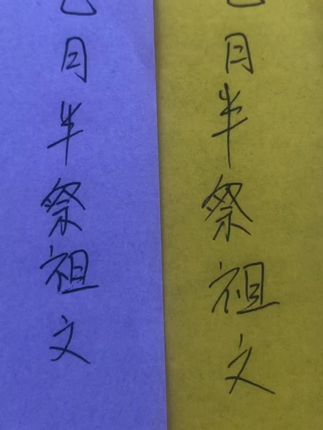 七月半祭祖文
七月半祭祖文